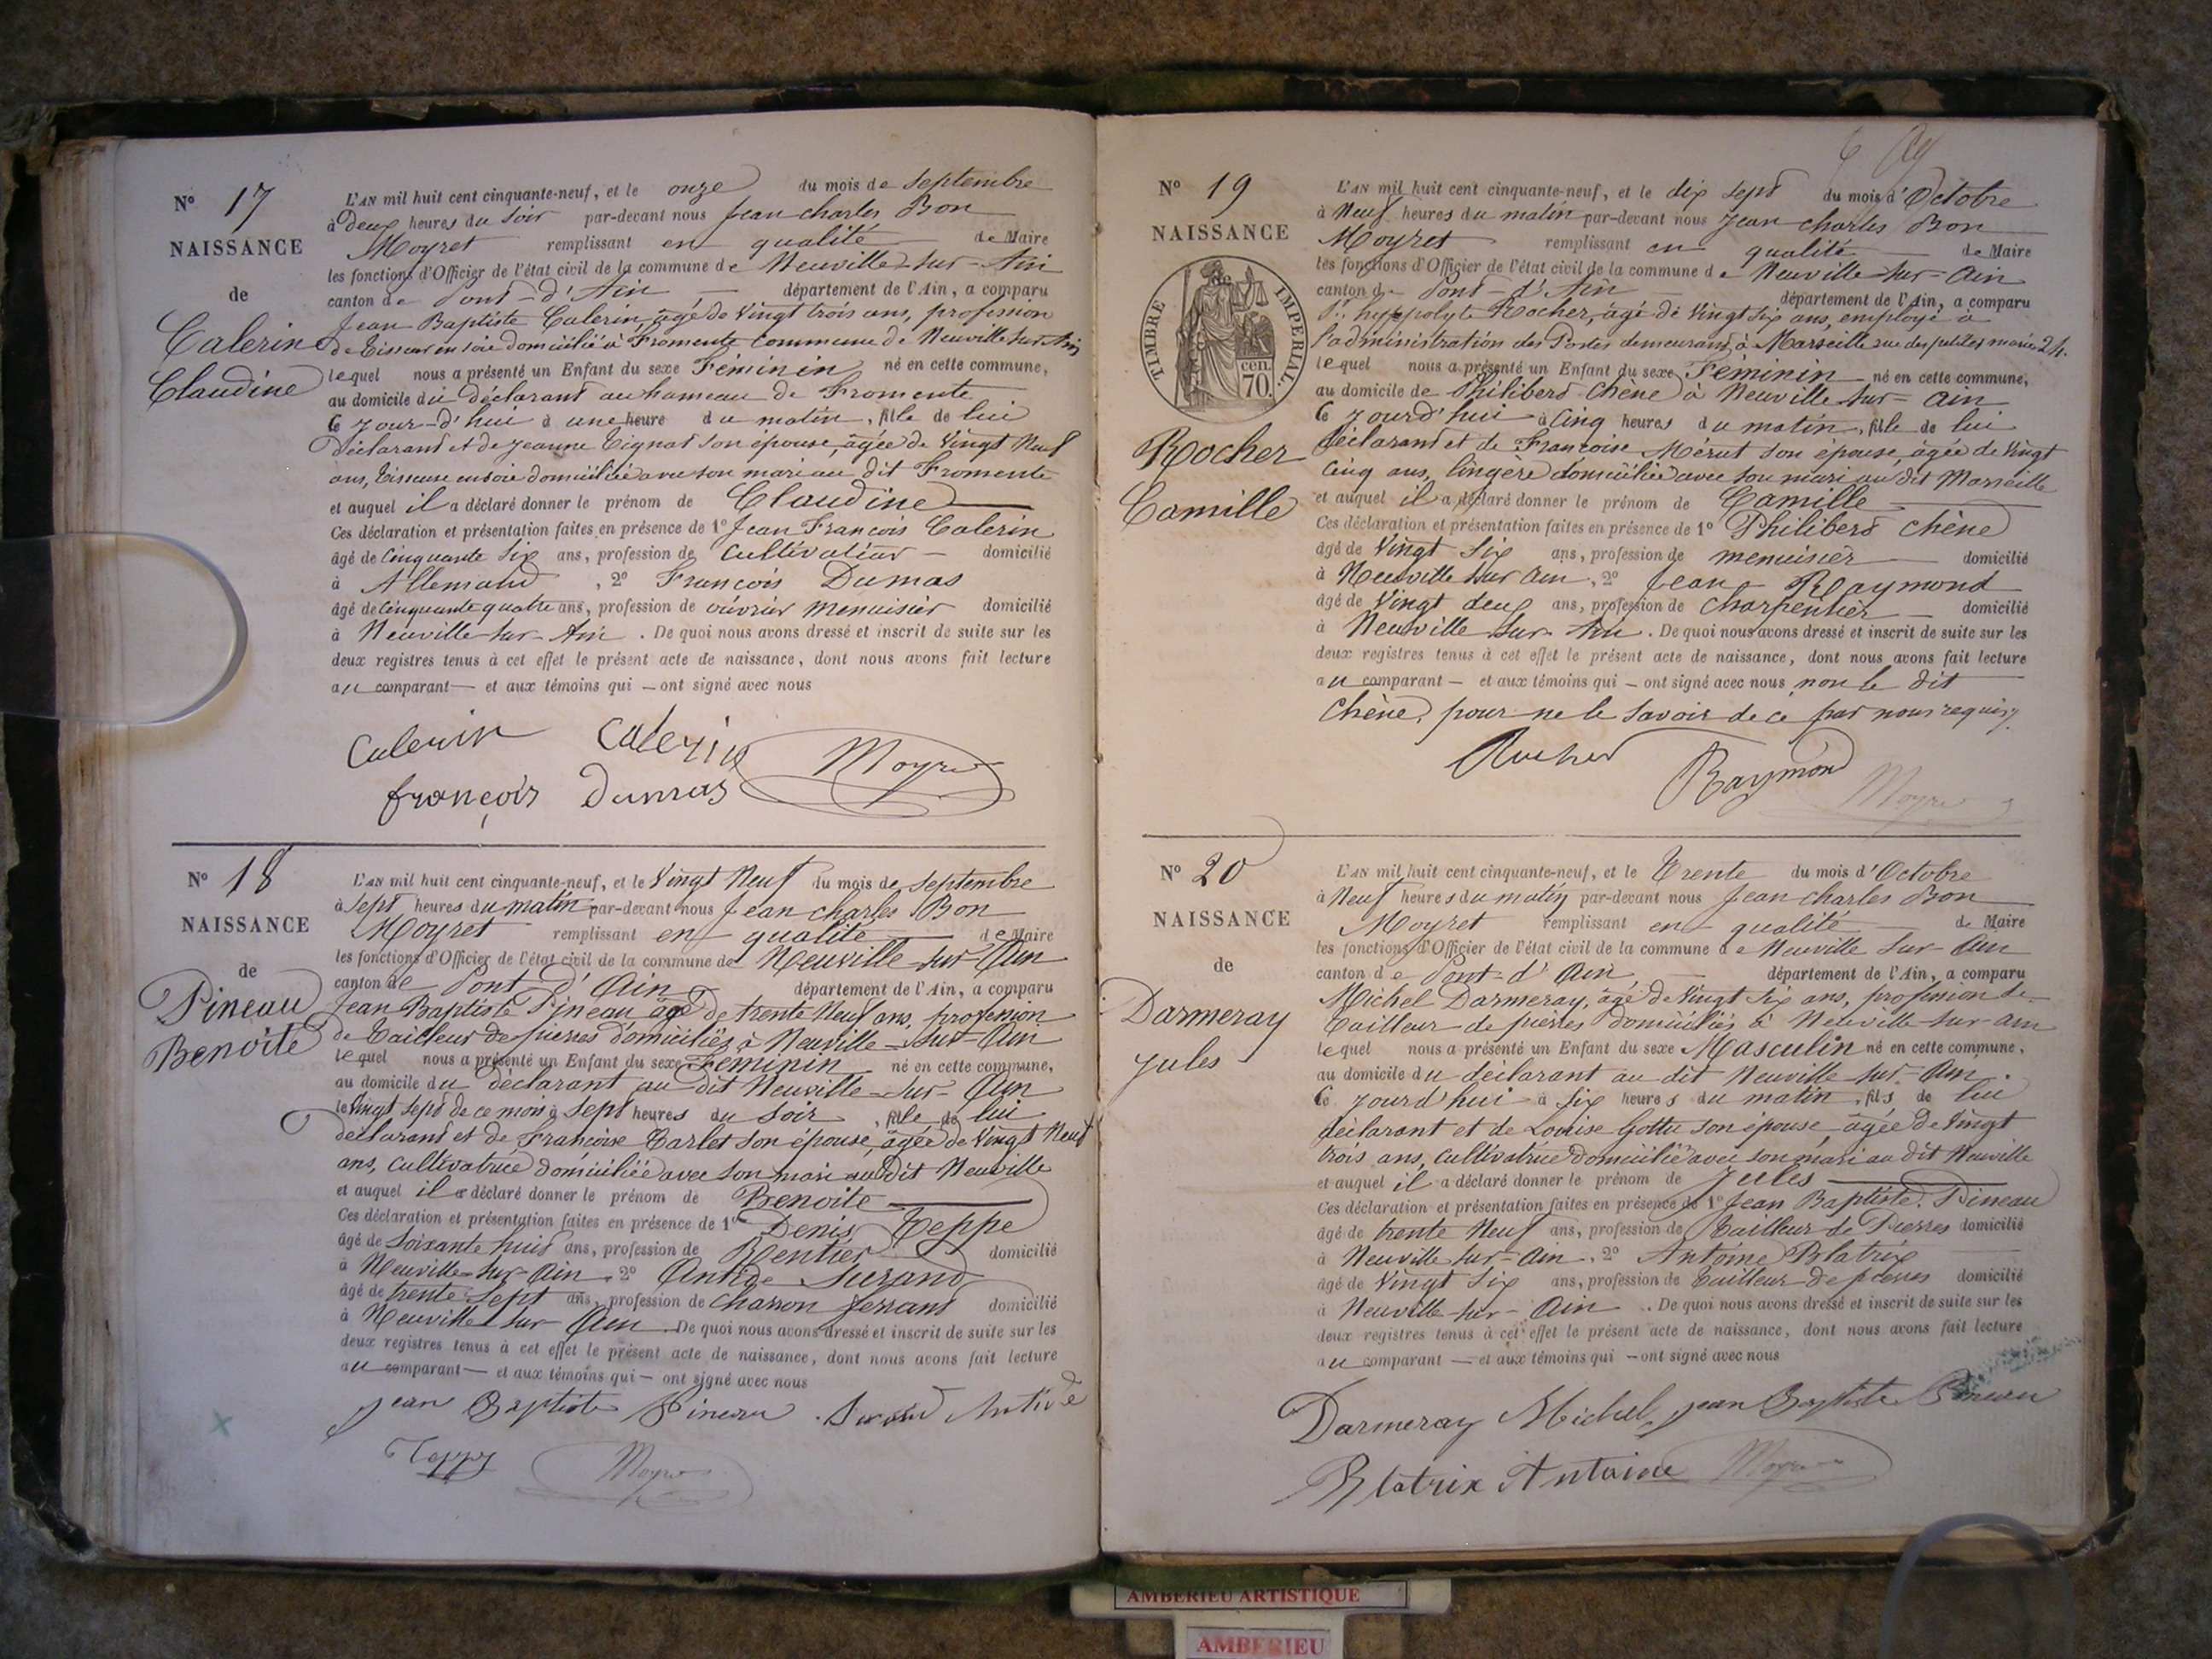 N° 17
NAISSANCE
de
Calerin
Claudine
L'AN mil huit cent cinquante-neuf, et le onze du mois de Septembre
à Deux heures du Soir par-devant nous Jean charles Bon
Moyret remplissant en qualité de Maire
les fonctions d'Officier de l'état civil de la commune de Neuville-sur-Ain
canton de Pont-d'Ain département de l'Ain, a comparu
Jean Baptiste Calerin, âgé de Vingt trois ans, profession
de Tisseur en soie domicilié à Fromente Commune de Neuville sur Ain
lequel nous a présenté un Enfant du sexe Féminin né en cette commune,
au domicile du déclarant au hameau de Fromente
Ce Jour-d'hui à une heure du matin, fille de lui
Déclarant et de Jeanne Tignat son épouse, âgée de Vingt Neuf
ans, Tisseuse en soie domiciliée avec son mari au dit Fromente
et auquel il a déclaré donner le prénom de Claudine
Ces déclaration et présentation faites en présence de 1° Jean François Calerin
âgé de Cinquante Six ans, profession de Cultivateur domicilié
à Allemand, 2° François Dumas
âgé de Cinquante quatre ans, profession de ouvrier Menuisier domicilié
à Neuville-sur-Ain. De quoi nous avons dressé et inscrit de suite sur les
deux registres tenus à cet effet le présent acte de naissance, dont nous avons fait lecture
au comparant — et aux témoins qui — ont signé avec nous
Calerin Calerin Moyret
françois Dumas
N° 18
NAISSANCE
de
Pineau
Benoite
L'AN mil huit cent cinquante-neuf, et le Vingt Neuf du mois de Septembre
à Sept heures du matin par-devant nous Jean charles Bon
Moyret remplissant en qualité de Maire
les fonctions d'Officier de l'état civil de la commune de Neuville-sur-Ain
canton de Pont-d'Ain département de l'Ain, a comparu
Jean Baptiste Pineau âgé de trente Neuf ans, profession
de Tailleur de pierres domiciliés à Neuville-sur-Ain
lequel nous a présenté un Enfant du sexe Féminin né en cette commune,
au domicile du déclarant au dit Neuville-sur-Ain
le Vingt sept de ce mois à Sept heures du Soir, fille de lui
déclarant et de Françoise Carlet son épouse, âgée de Vingt Neuf
ans, Cultivatrice domiciliée avec son mari au dit Neuville
et auquel il a déclaré donner le prénom de Benoite
Ces déclaration et présentation faites en présence de 1° Denis Teppe
âgé de Soixante huit ans, profession de Rentier domicilié
à Neuville-sur-Ain, 2° Antide Surand
âgé de trente Sept ans, profession de Charron ferrant domicilié
à Neuville sur Ain. De quoi nous avons dressé et inscrit de suite sur les
deux registres tenus à cet effet le présent acte de naissance, dont nous avons fait lecture
au comparant — et aux témoins qui — ont signé avec nous
Jean Baptiste Pineau Surand Antide
Teppe Moyret
N° 19
NAISSANCE
TIMBRE IMPERIAL.
cen.
70.
Rocher
Camille
L'AN mil huit cent cinquante-neuf, et le dix sept du mois d'Octobre
à Neuf heures du matin par-devant nous Jean charles Bon
Moyret remplissant en qualité de Maire
les fonctions d'Officier de l'état civil de la commune de Neuville-sur-Ain
canton de Pont-d'Ain département de l'Ain, a comparu
hyppolyte Rocher, âgé de Vingt six ans, employé à
l'administration des Postes demeurant à Marseille rue des petites maries 24.
lequel nous a présenté un Enfant du sexe Féminin né en cette commune,
au domicile de Philibert Chêne à Neuville-sur-Ain
Ce Jourd'hui à Cinq heures du matin, fille de lui
déclarant et de Françoise Mérut son épouse, âgée de Vingt
Cinq ans, lingère domiciliée avec son mari au dit Marseille
et auquel il a déclaré donner le prénom de Camille
Ces déclaration et présentation faites en présence de 1° Philibert Chêne
âgé de Vingt Six ans, profession de menuisier domicilié
à Neuville sur Ain, 2° Jean Raymond
âgé de Vingt deux ans, profession de Charpentier domicilié
à Neuville sur Ain. De quoi nous avons dressé et inscrit de suite sur les
deux registres tenus à cet effet le présent acte de naissance, dont nous avons fait lecture
au comparant — et aux témoins qui — ont signé avec nous, non le dit
Chêne, pour ne le savoir de ce par nous requis.
Rocher Raymond Moyret
N° 20
NAISSANCE
de
Darmeray
Jules
L'AN mil huit cent cinquante-neuf, et le Trente du mois d'Octobre
à Neuf heures du matin par-devant nous Jean charles Bon
Moyret remplissant en qualité de Maire
les fonctions d'Officier de l'état civil de la commune de Neuville sur-Ain
canton de Pont-d'Ain département de l'Ain, a comparu
Michel Darmeray, âgé de Vingt six ans, profession de
Tailleur de pierres domiciliés à Neuville-sur-Ain
lequel nous a présenté un Enfant du sexe Masculin né en cette commune,
au domicile du déclarant au dit Neuville-sur-Ain.
Ce Jourd'hui à six heures du matin, fils de lui
déclarant et de Louise Gottu son épouse, âgée de Vingt
trois ans, Cultivatrice domiciliée avec son mari au dit Neuville
et auquel il a déclaré donner le prénom de Jules
Ces déclaration et présentation faites en présence de 1° Jean Baptiste Pineau
âgé de trente Neuf ans, profession de Tailleur de Pierres domicilié
à Neuville-sur-Ain, 2° Antoine Blatrix
âgé de Vingt Six ans, profession de Tailleur de pierres domicilié
à Neuville-sur-Ain. De quoi nous avons dressé et inscrit de suite sur les
deux registres tenus à cet effet le présent acte de naissance, dont nous avons fait lecture
au comparant — et aux témoins qui — ont signé avec nous
Darmeray Michel Jean Baptiste Pineau
Blatrix Antoine Moyret
AMBERIEU ARTISTIQUE
AMBERIEU